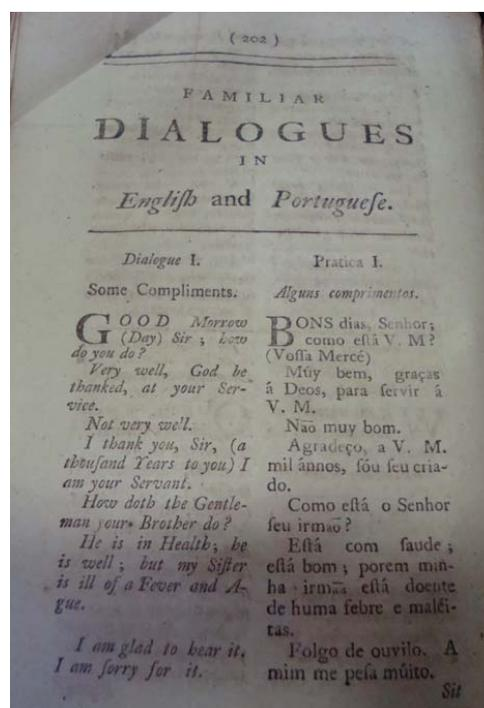 ( 202 )
FAMILIAR
DIALOGUES
IN
Engliſh and Portugueſe.
Dialogue I.
Some Compliments.
GOOD Morrow
(Day) Sir ; how
do you do ?
Very well, God be
thanked, at your Ser-
vice.
Not very well.
I thank you, Sir, (a
thouſand Years to you) I
am your Servant.
How doth the Gentle-
man your Brother do ?
He is in Health ; he
is well ; but my Siſter
is ill of a Fever and A-
gue.
I am glad to hear it.
I am ſorry for it.
Pratica I.
Alguns comprimentos.
BONS dias, Senhor ;
como eſtá V. M ?
(Voſſa Mercé)
Múy bem, graças
á Deos, para ſervir á
V. M.
Naõ muy bom.
Agradeço, a V. M.
mil ánnos, ſóu ſeu cria-
do.
Como eſtá o Senhor
ſeu irmaõ ?
Eſtá com ſaude ;
eſtá bom ; porem miń-
ha irmãa eſtá doente
de huma febre e maléi-
tas.
Folgo de ouvilo. A
mim me peſa múito.
Sit